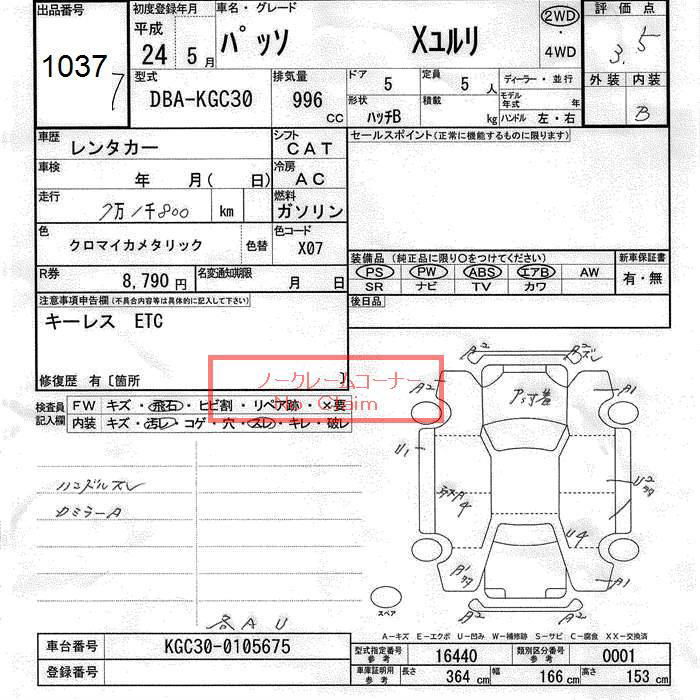 出品番号 初度登録年月 車名・グレード 2WD 評価点
平成 パッソ Xユルリ ・ 3.5
1037 24 5月 4WD
7 型式 排気量 ドア 定員 ディーラー・並行 外装 内装
DBA-KGC30 996 5 5人 モデル年式 年 B
CC 形状 ハッチB 積載 kg ハンドル 左・右
車歴 レンタカー シフト CAT セールスポイント(正常に機能するものに限ります)
車検 年 月( 日) 冷房 AC
走行 7万1千800 km 燃料 ガソリン
色 クロマイカメタリック 色替 色コード X07
装備品(純正品に限り○をつけてください) 新車保証書
PS PW ABS エアB AW 有・無
R券 8,790円 名変通知期限 月 日 SR ナビ TV カワ
注意事項申告欄(不具合内容等は具体的に記入して下さい) 後日品
キーレス ETC
修復歴 有〔箇所 〕
ノークレームコーナー
No Claim
検査員記入欄 FW キズ・飛石・ヒビ割・リペア跡・×要
内装 キズ・汚レ・コゲ・穴・スレ・キレ・破レ
A2 B2ズレ
A2 A1
U1 U2
ハンドルズレ
カミラーA 4
U4
A1 A1
スペア
各AU A2 A2
A-キズ E-エクボ U-凹み W-補修跡 S-サビ C-腐食 XX-交換済
車台番号 KGC30-0105675 型式指定番号 参考 16440 類別区分番号 参考 0001
登録番号 車庫証明用 参考 長さ 364cm 幅 166cm 高さ 153cm